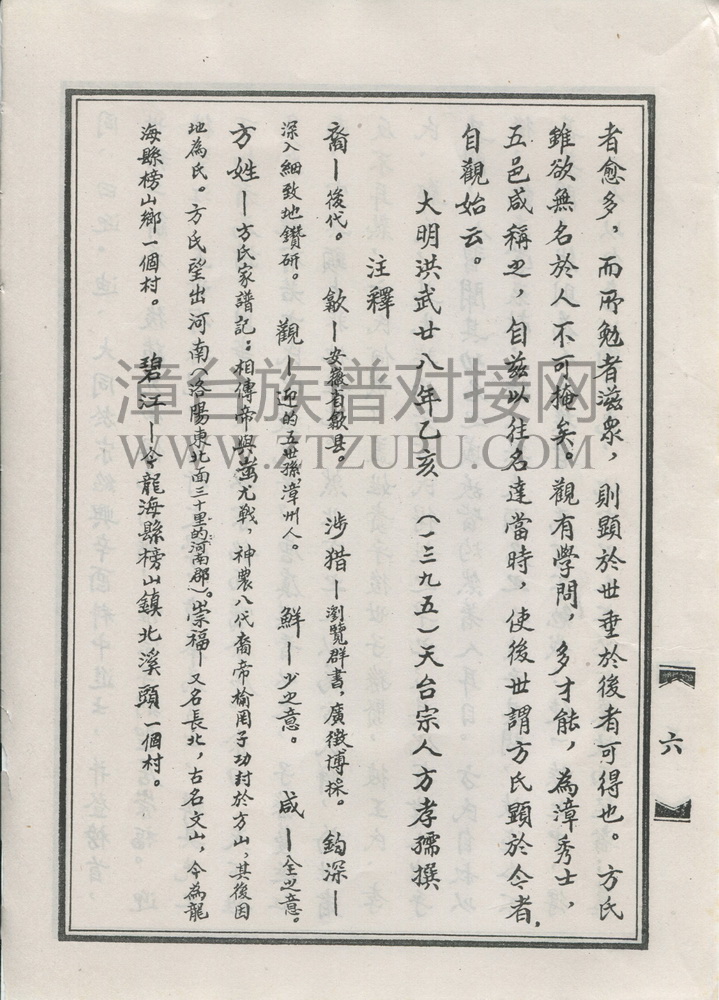 者愈多，而所勉者滋衆，則顯於世垂於後者可得也。方氏
雖欲無名於人不可掩矣。觀有學問，多才能，為漳秀士，
五邑咸稱之，自兹以往名達當時，使後世謂方氏顯於今者，
自觀始云。
大明洪武廿八年乙亥（一三九五）天台宗人方孝孺撰
注釋
裔—後代。歙—安徽省歙县。涉猎—瀏覽群書，廣徵博採。鈎深—
深入細致地鑽研。觀—迎的五世孫，漳州人。鮮—少之意。咸—全之意。
方姓—方氏家譜記：相傳帝與蚩尤戰，神農八代裔帝榆罔子功封於方山，其後因
地為氏。方氏望出河南（洛陽東北面三十里的河南郡）。崇福—又名長北，古名文山，今為龍
海縣榜山鄉一個村。碧江—今龍海縣榜山鎮北溪頭一個村。
六
漳台族谱对接网
WWW.ZTZUPU.COM